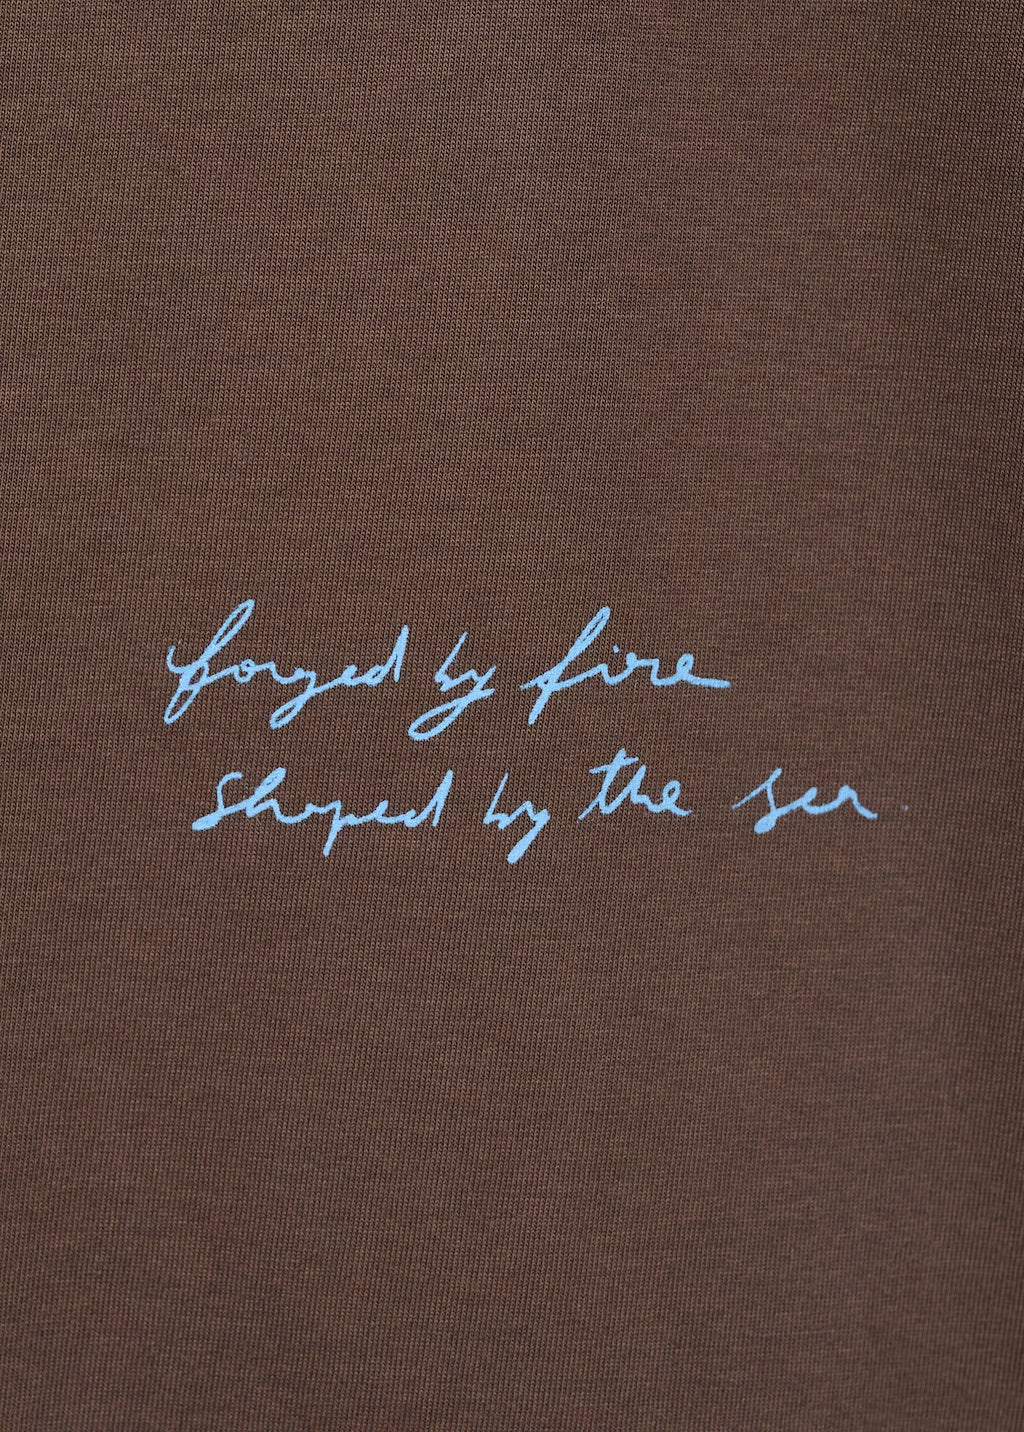 forged by fire
shaped by the sea